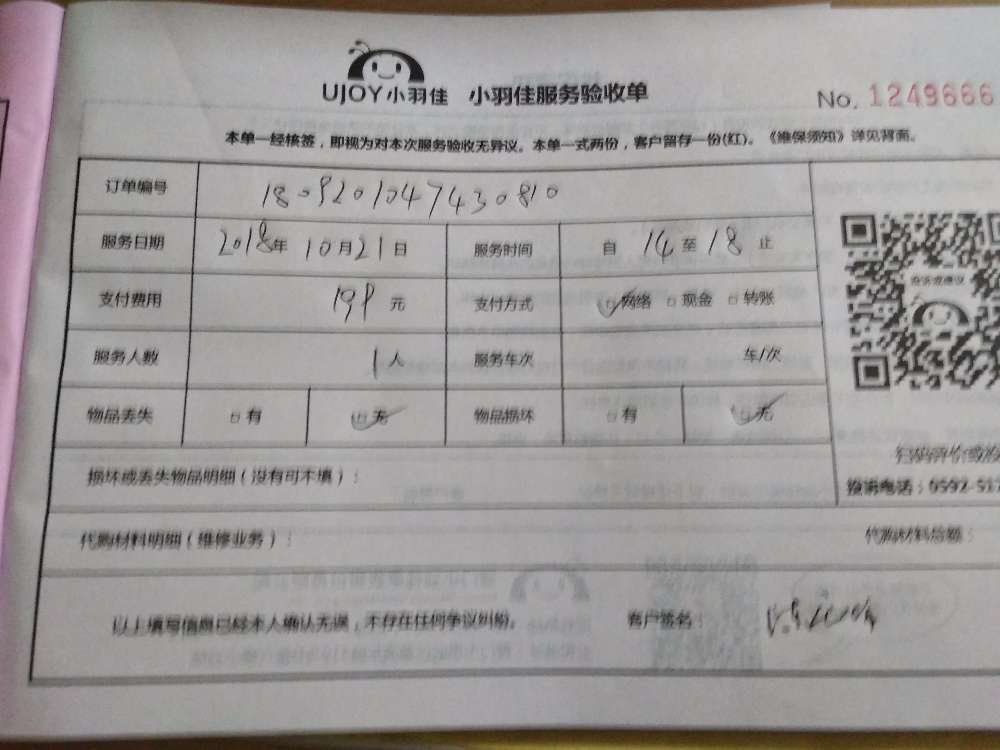 UJOY小羽佳 小羽佳服务验收单 No. 1249666
本单一经核签，即视为对本次服务验收无异议。本单一式两份，客户留存一份(红)。《维保须知》详见背面。
订单编号 1809201047430810
服务日期 2018年 10月21日 服务时间 自 14 至 18 止
支付费用 198 元 支付方式 ☑网络 □现金 □转账
服务人数 1人 服务车次 车/次
物品丢失 □有 ☑无 物品损坏 □有 ☑无
投诉或建议
损坏或丢失物品明细（没有可不填）：
扫码评价或投
投诉电话：0592-517
代购材料明细（维修业务）： 代购材料总额：
以上填写信息已经本人确认无误，不存在任何争议纠纷。 客户签名：